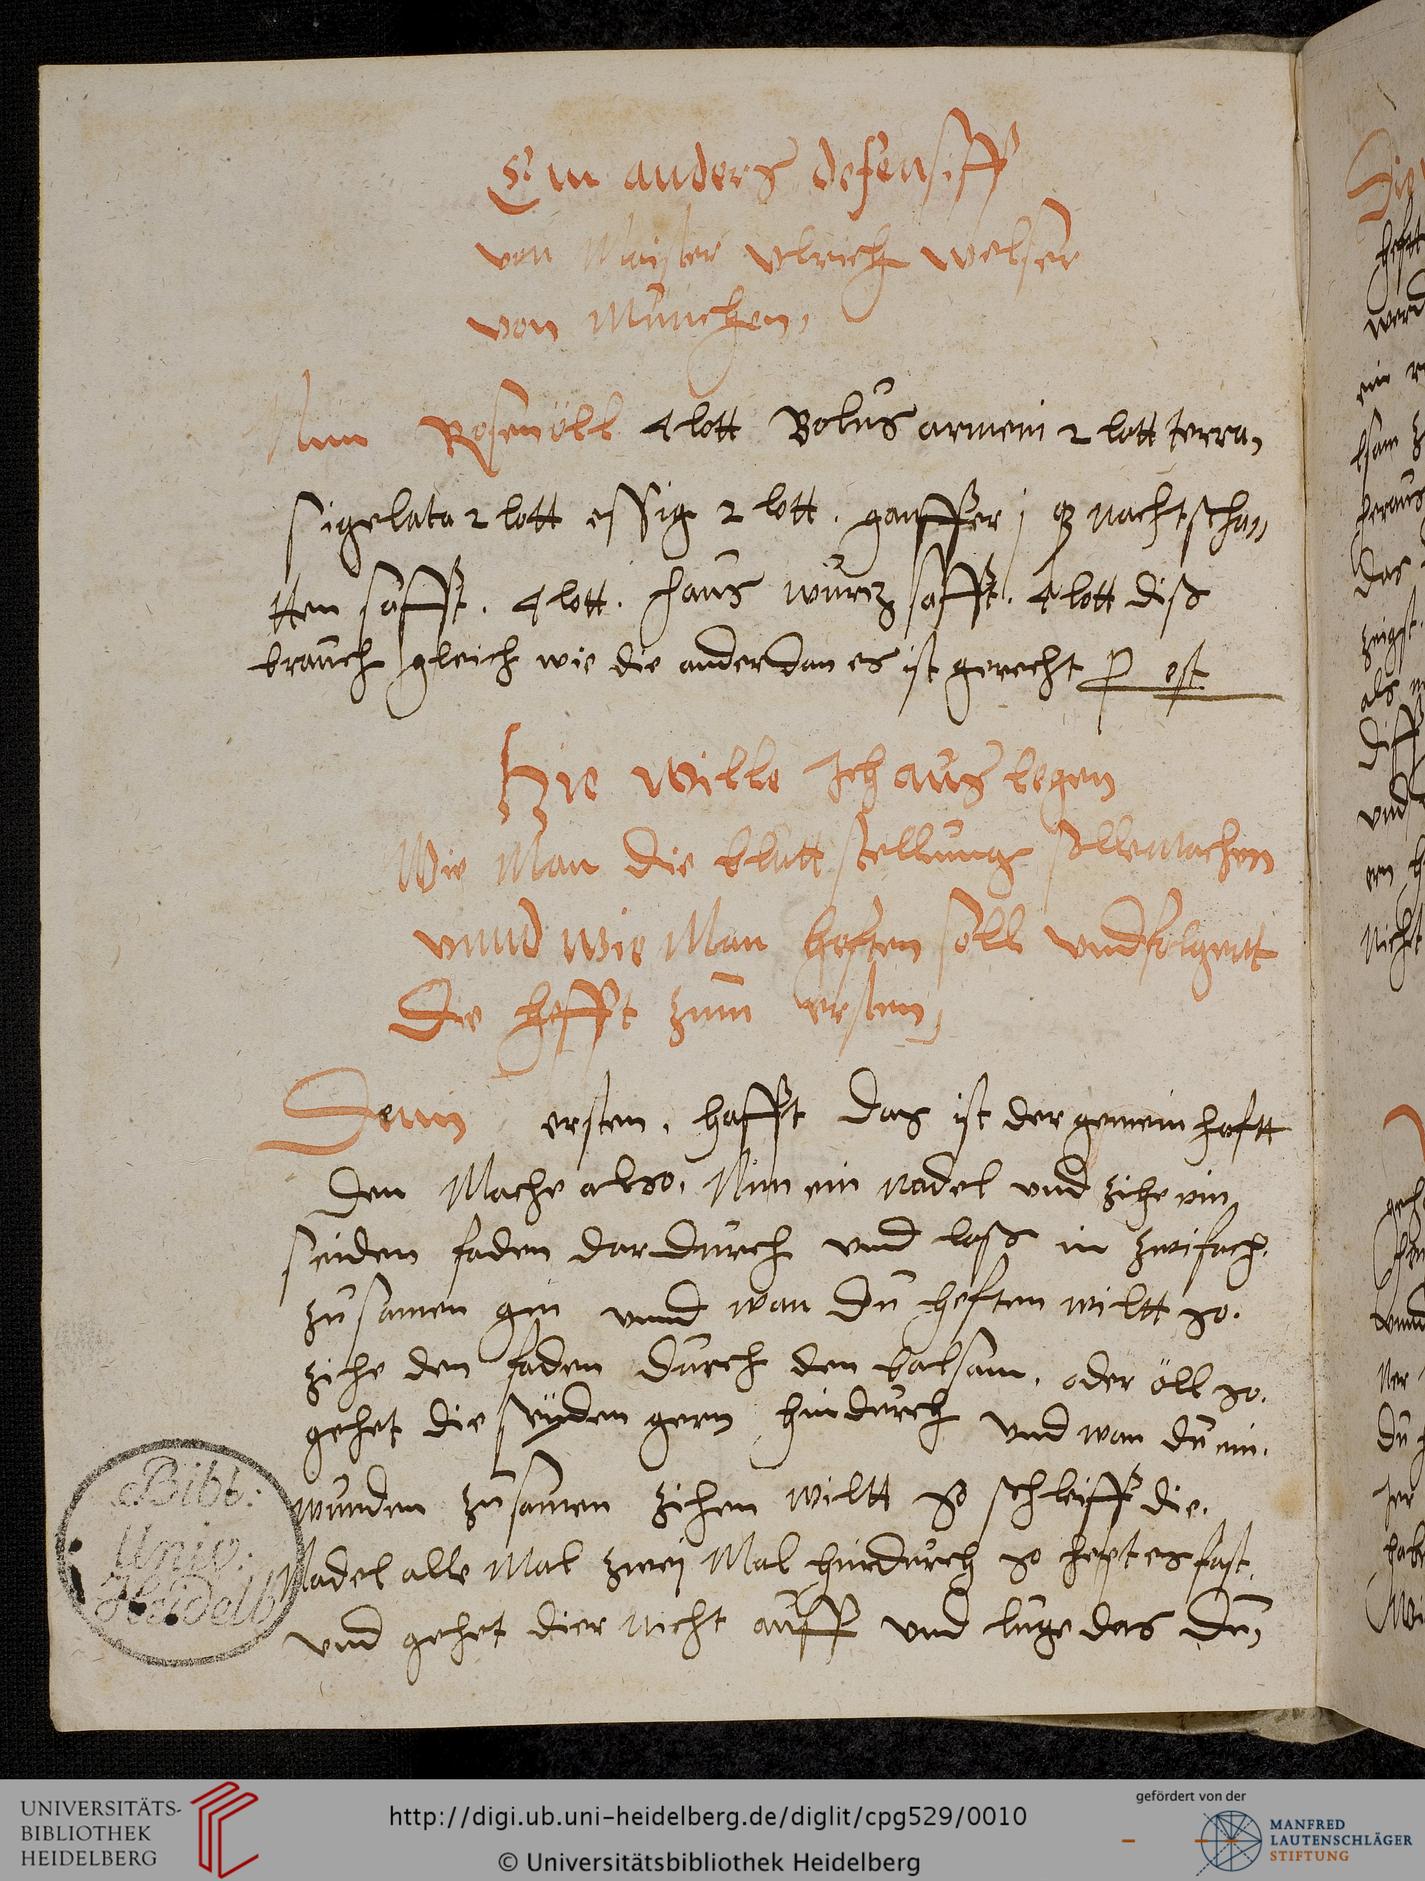 Ein anders defensiff
von Maister vlrich welser
von München,
Nim Rosenöll 4 lott Bolus armeni 2 lott terra,
sigelata 2 lott essig 2 lott. gauffer j nachtscha„
tten safft. 4 lott. haus wurcz safft. 4 lott diß
brauch gleich wie die ander dan es ist gerecht est
Hie wille Ich aus legen
Wie Man die blutt stellung solle machen
vnnd wie Man heften soll vnd folgett
die hefft zum ersten,
Denn ersten. hafft das ist der gemein haftt
den Mache also. Nim ein nadel vnd zihe ein,
seiden faden dardurch vnd laß in zwifach.
zusamen gin vnnd wan du heften wiltt so.
zihe den faden durch den balsam. oder öll so.
gehet die seÿden gern hindurch vnd wan du ein.
wunden zusamen zihen wiltt so schleiff die.
Nadel alle Mal zwej Mal hindurch so heft es fast.
vnd gehet dier nicht auff vnd luge das du,
Bibl:
Univ:
Heidelb
UNIVERSITÄTS-
BIBLIOTHEK
HEIDELBERG
http://digi.ub.uni-heidelberg.de/diglit/cpg529/0010
© Universitätsbibliothek Heidelberg
gefördert von der
MANFRED
LAUTENSCHLÄGER
STIFTUNG